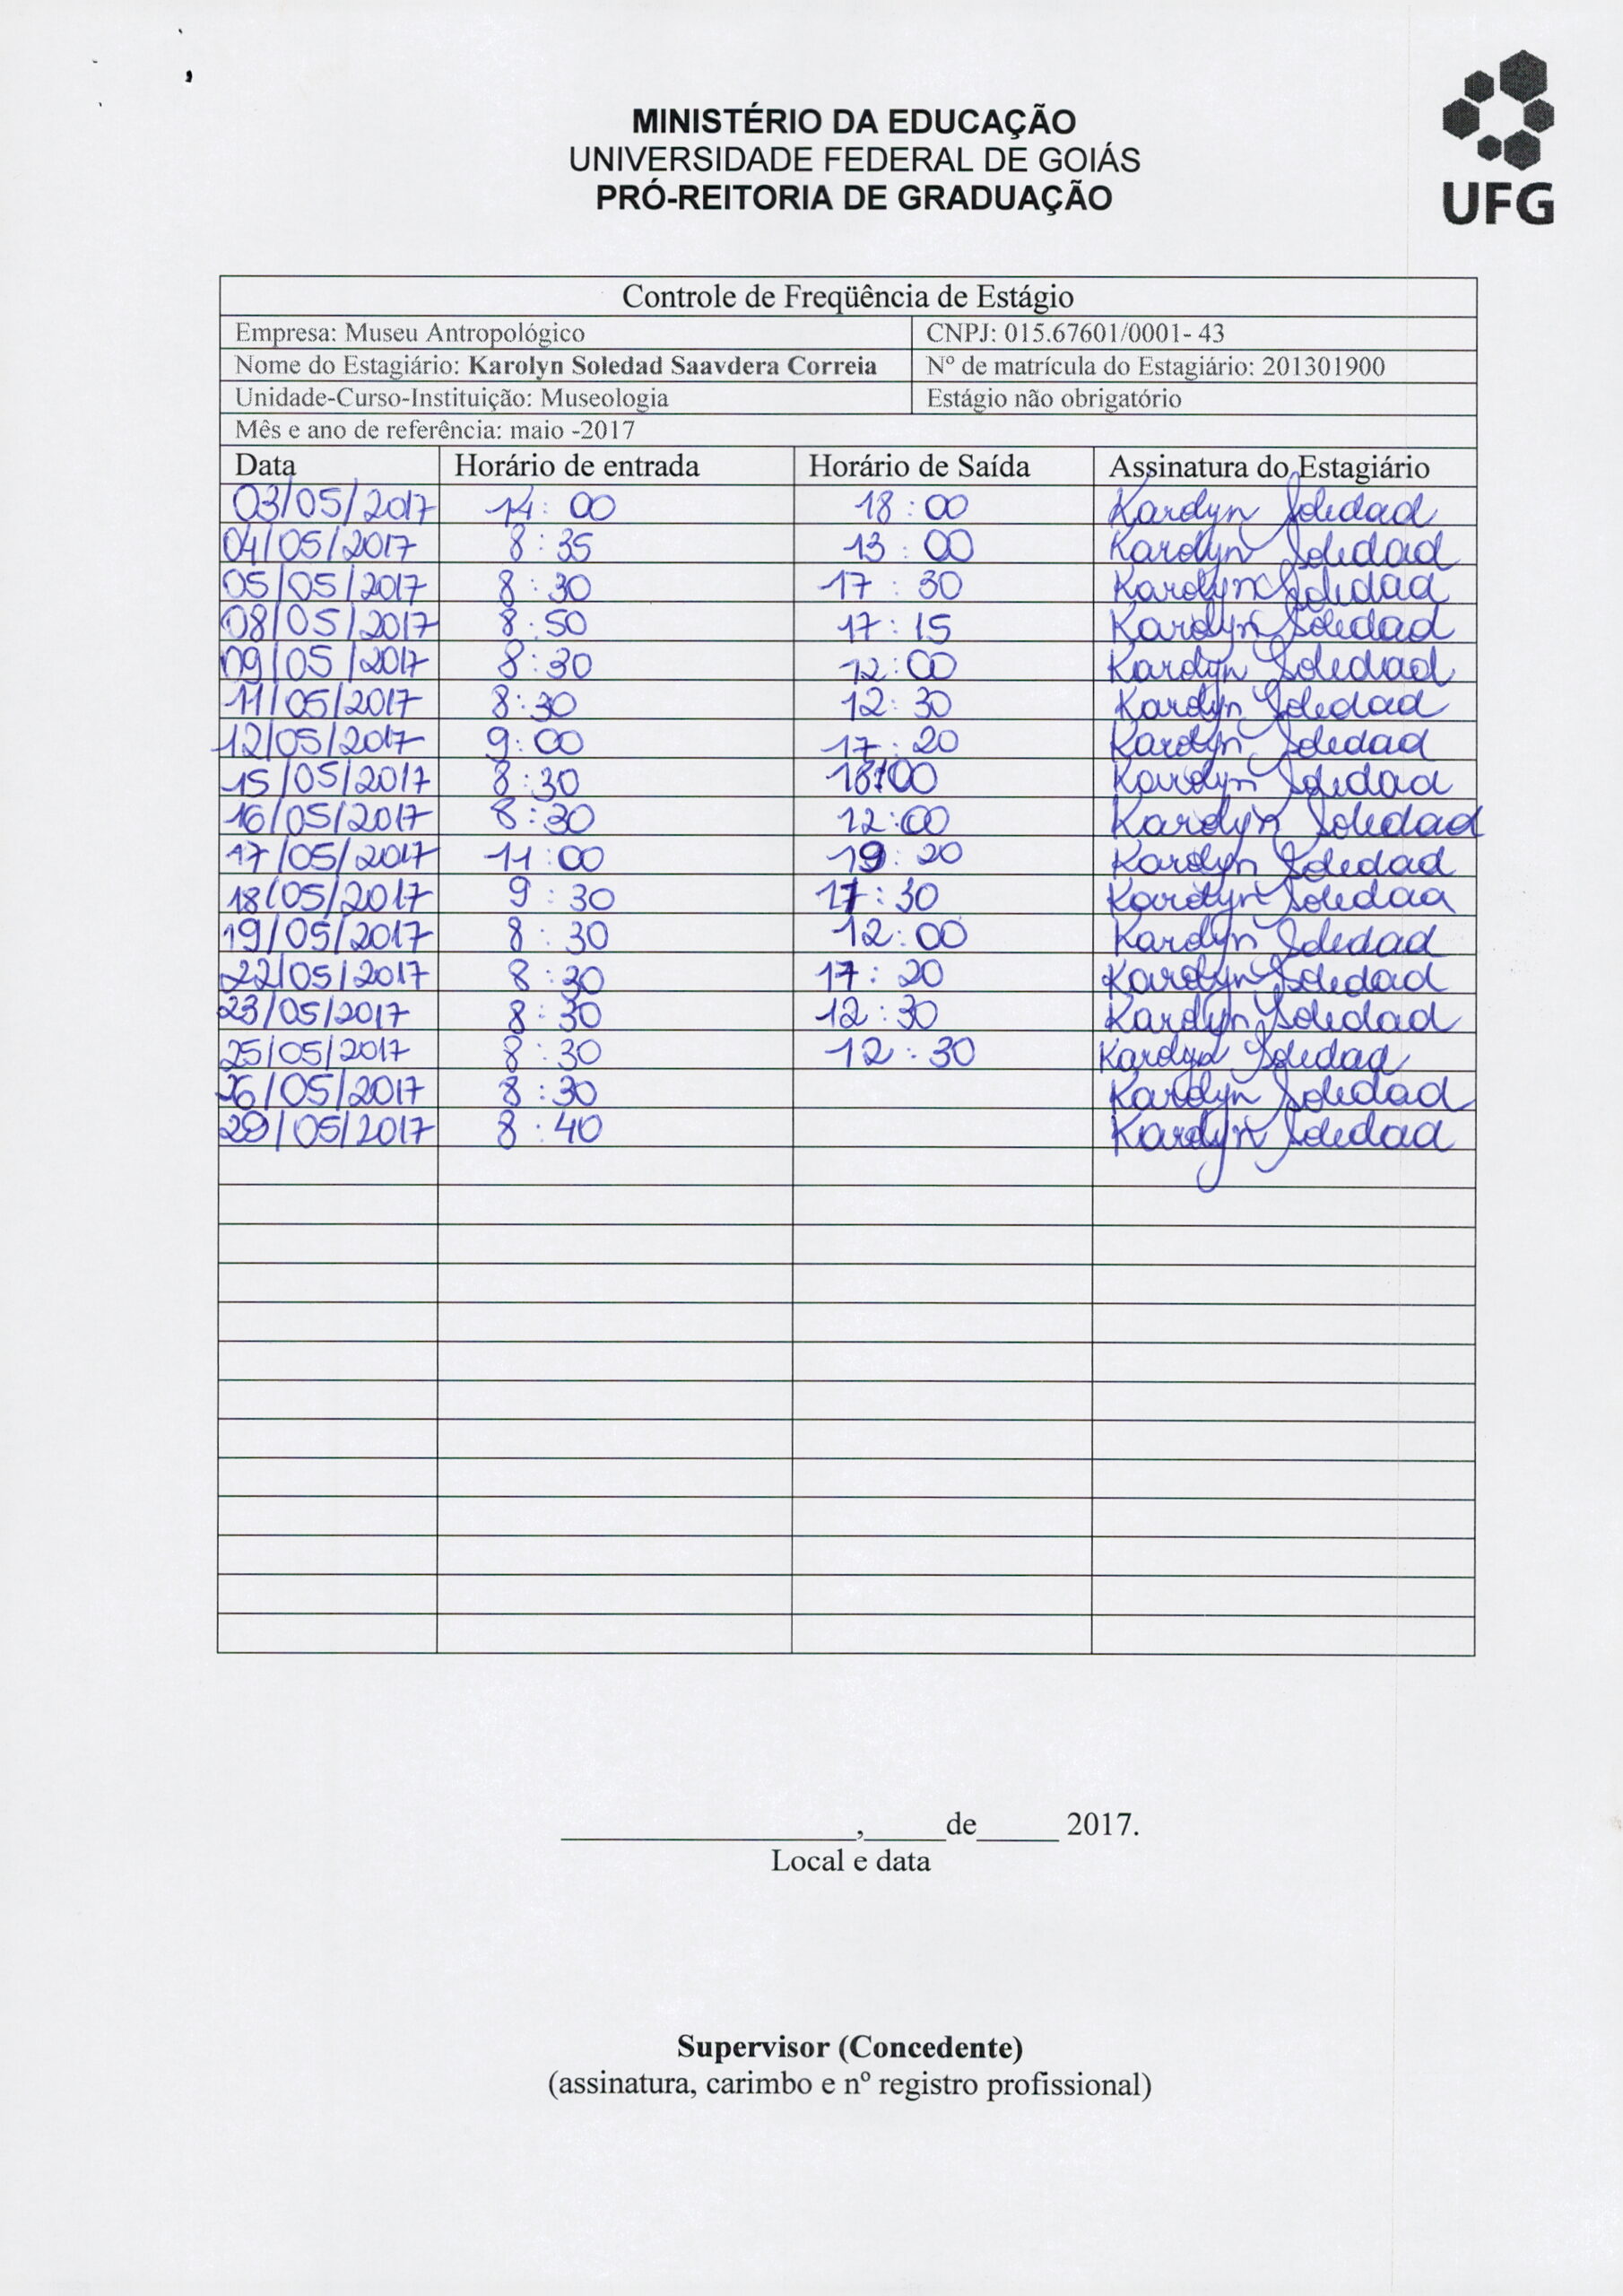 MINISTÉRIO DA EDUCAÇÃO
UNIVERSIDADE FEDERAL DE GOIÁS
PRÓ-REITORIA DE GRADUAÇÃO
UFG
Controle de Freqüência de Estágio
Empresa: Museu Antropológico CNPJ: 015.67601/0001- 43
Nome do Estagiário: Karolyn Soledad Saavdera Correia Nº de matrícula do Estagiário: 201301900
Unidade-Curso-Instituição: Museologia Estágio não obrigatório
Mês e ano de referência: maio -2017
Data Horário de entrada Horário de Saída Assinatura do Estagiário
03/05/2017 14:00 18:00 Karolyn Soledad
04/05/2017 8:35 13:00 Karolyn Soledad
05/05/2017 8:30 17:30 Karolyn Soledad
08/05/2017 8:50 17:15 Karolyn Soledad
09/05/2017 8:30 12:00 Karolyn Soledad
11/05/2017 8:30 12:30 Karolyn Soledad
12/05/2017 9:00 17:20 Karolyn Soledad
15/05/2017 8:30 18:00 Karolyn Soledad
16/05/2017 8:30 12:00 Karolyn Soledad
17/05/2017 11:00 19:20 Karolyn Soledad
18/05/2017 9:30 17:30 Karolyn Soledad
19/05/2017 8:30 12:00 Karolyn Soledad
22/05/2017 8:30 17:20 Karolyn Soledad
23/05/2017 8:30 12:30 Karolyn Soledad
25/05/2017 8:30 12:30 Karolyn Soledad
26/05/2017 8:30 Karolyn Soledad
29/05/2017 8:40 Karolyn Soledad
__________________,_____de_____ 2017.
Local e data
Supervisor (Concedente)
(assinatura, carimbo e nº registro profissional)